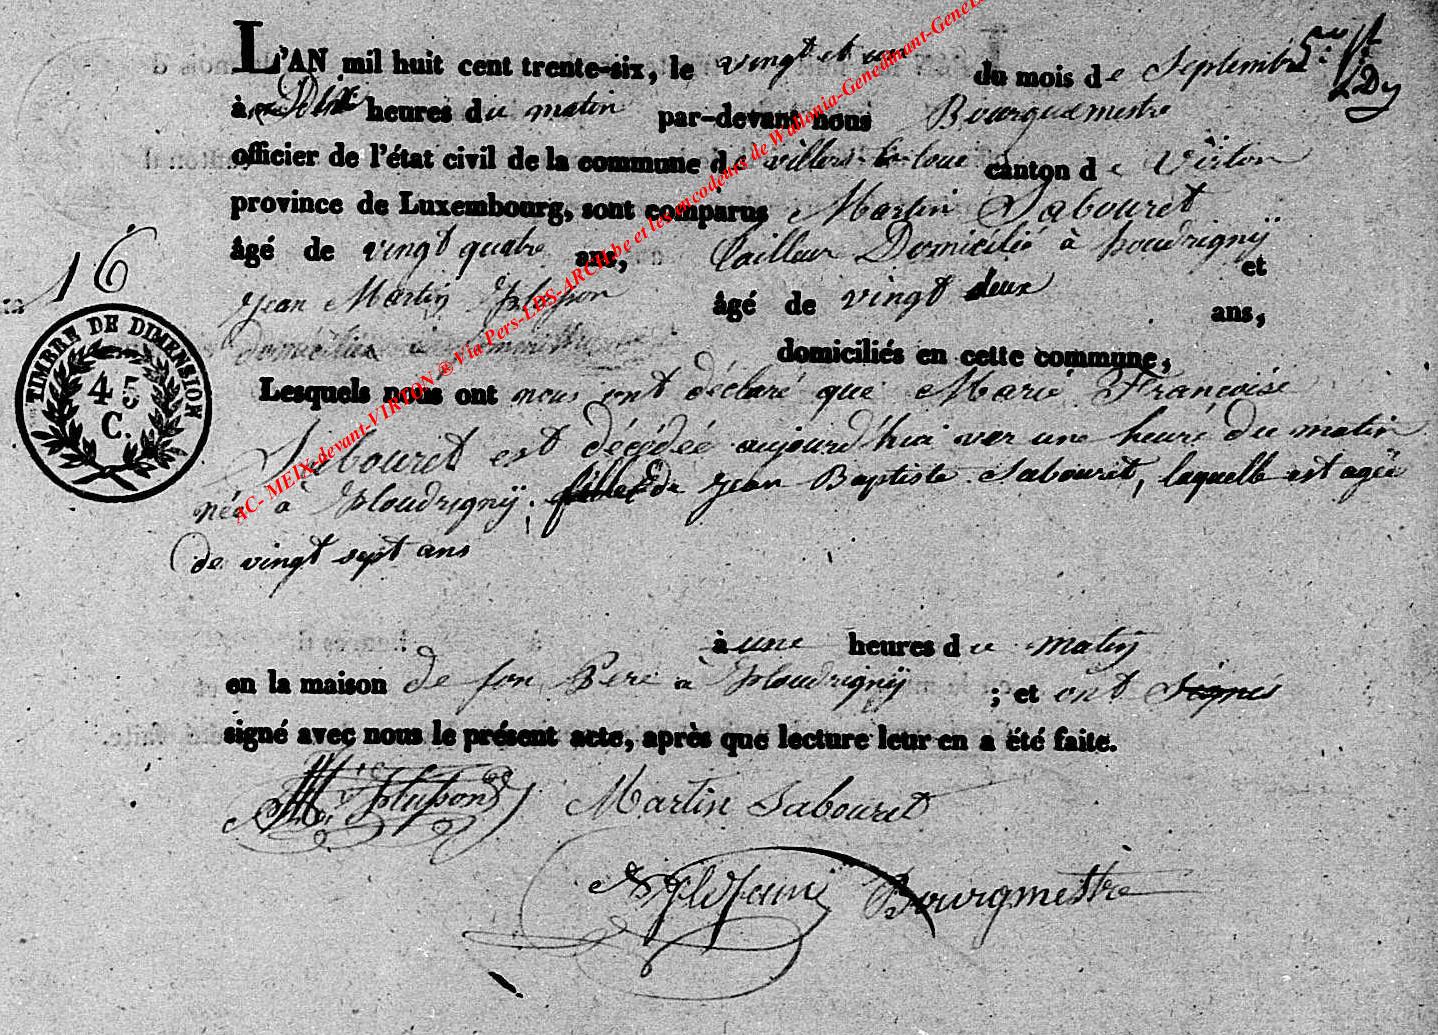 L'AN mil huit cent trente-six, le vingt et un du mois de Septembre
à Dix heures du matin par-devant nous Bourguemestre
officier de l'état civil de la commune de villers-la-loue canton de Virton
province de Luxembourg, sont comparus Martin Sabouret
âgé de vingt quatre ans, tailleur Domicilié à houdrignÿ et
Jean Martin âgé de vingt deux ans,
domiciliés en cette commune,
16
TIMBRE DE DIMENSION
45
C.
Lesquels nous ont nous ont déclaré que Marie Françoise
Sabouret est décédée aujourd'hui ver une heure du matin
née à houdrignÿ; fille de Jean Baptiste Sabouret, laquelle est agée
de vingt sept ans
à une heures du matin
en la maison de son Pere à houdrignÿ ; et ont Signés
signé avec nous le présent acte, après que lecture leur en a été faite.
Martin Sabouret
Bourgmestre
AC- MEIX-devant-VIRTON ® Via Pers-LDS-ARCH.be et les encodeurs de Wallonia-Genedinant-Genel